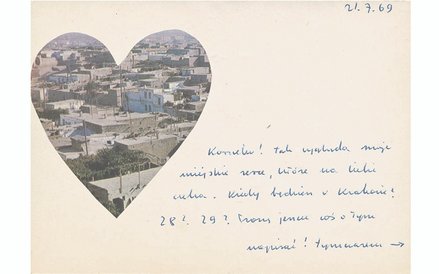 21.7.69
Korneliu! Tak wygląda moje
miejskie serce, które na Ciebie
czeka. Kiedy będziesz w Krakowie?
28? 29? Proszę jeszcze coś o tym
napisać! Tymczasem →